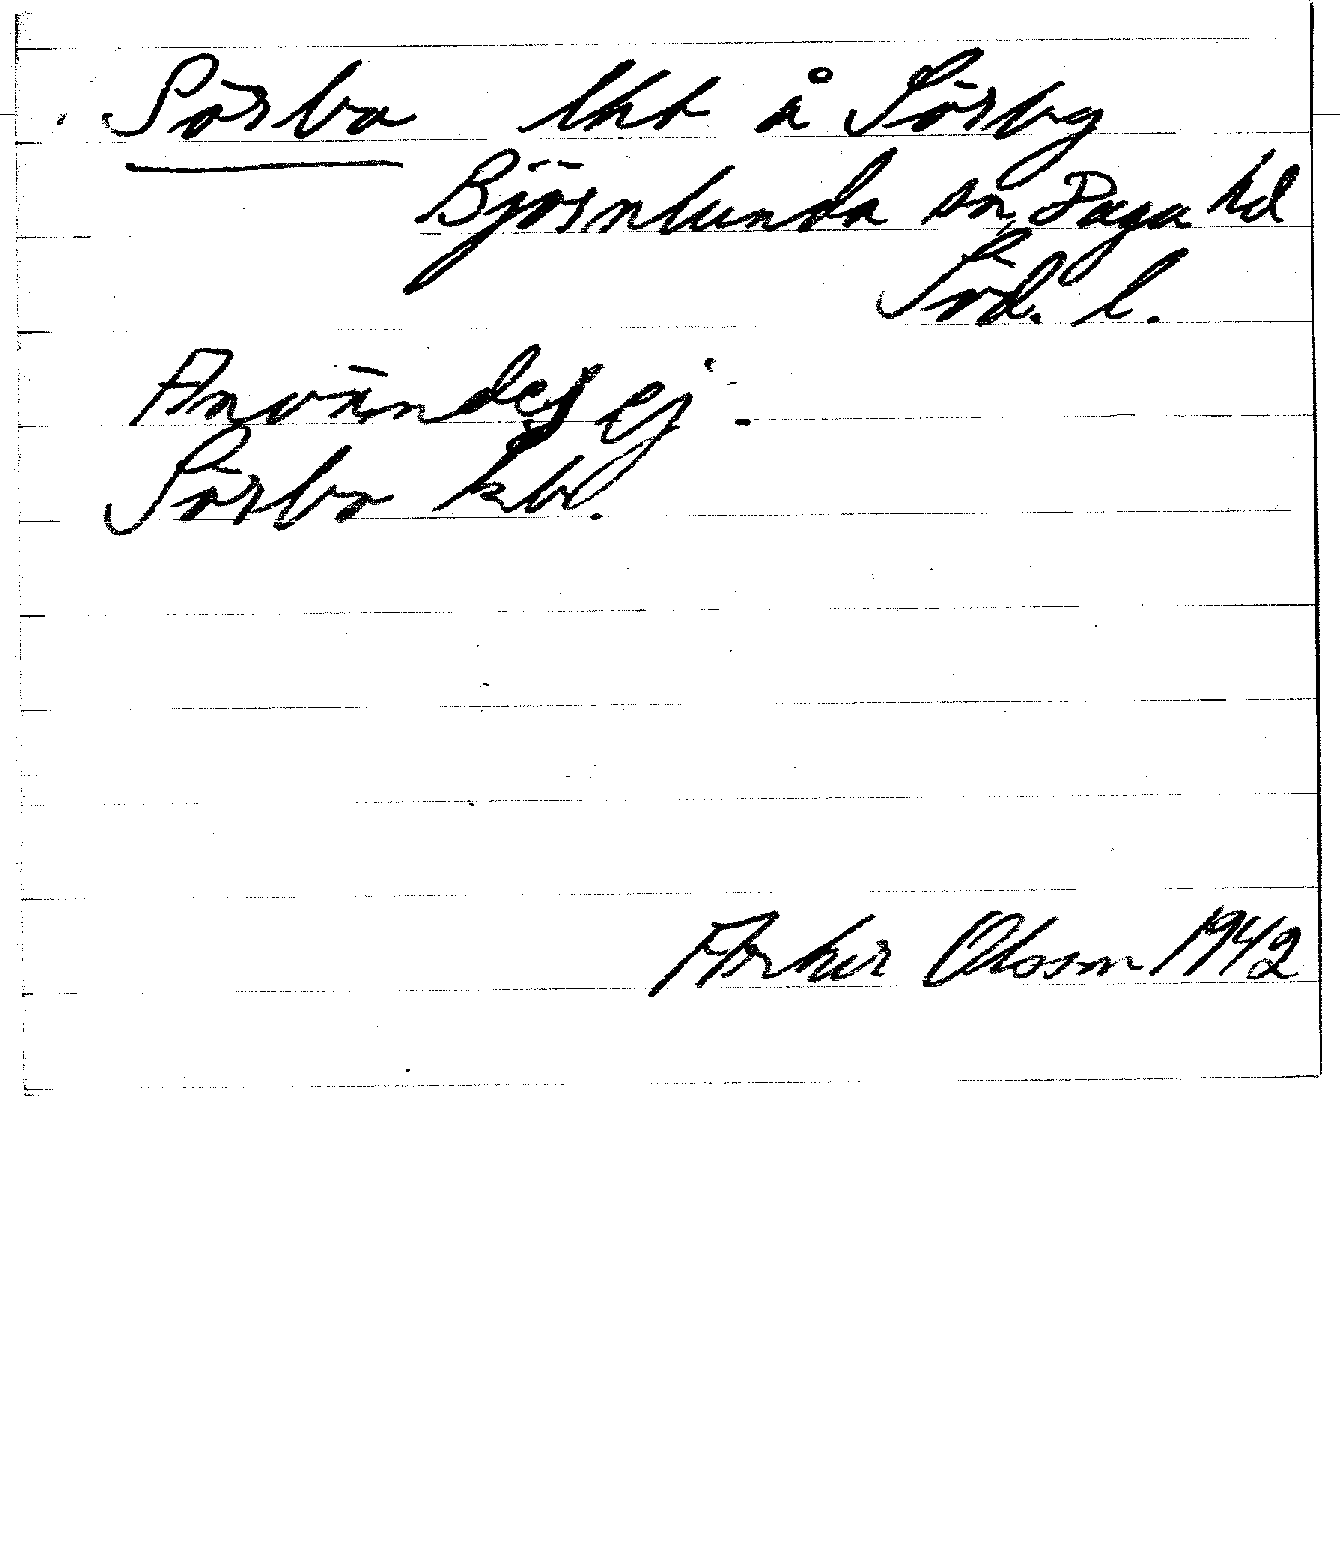 Sörbo lht å Sörby
Björnlunda sn, Daga hd
Söd. l.
Användes ej.
Sörbo kbr.
Olsson 1942